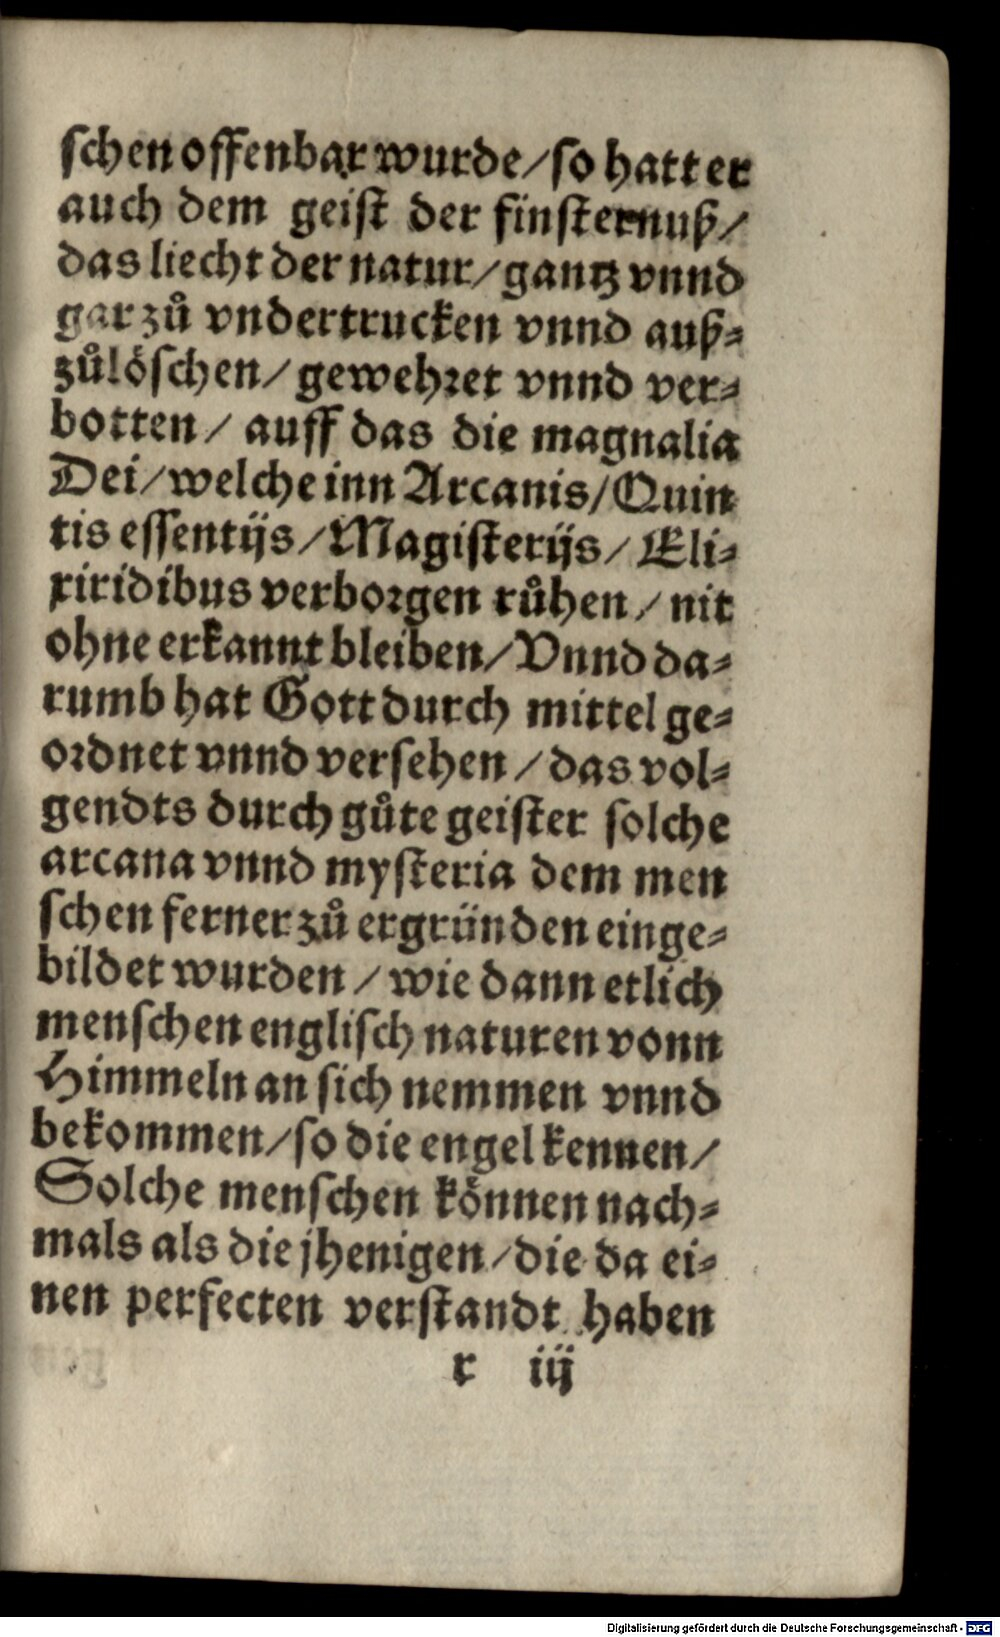 schen offenbar wurde/so hatt er
auch dem geist der finsternuß/
das liecht der natur/gantz vnnd
gar zů vndertrucken vnnd auß⸗
zůlöschen/gewehret vnnd ver⸗
botten/ auff das die magnalia
Dei/welche inn Arcanis/Quin
tis essentijs/Magisterijs/ Eli⸗
xiridibus verborgen růhen/nit
ohne erkannt bleiben/Vnnd da⸗
rumb hat Gott durch mittel ge⸗
ordnet vnnd versehen/das vol⸗
gendts durch gůte geister solche
arcana vnnd mysteria dem men
schen ferner zů ergründen einge⸗
bildet wurden/wie dann etlich
menschen englisch naturen vonn
Himmeln an sich nemmen vnnd
bekommen/so die engel kennen/
Solche menschen können nach⸗
mals als die jhenigen/die da ei⸗
nen perfecten verstandt haben
r iij
Digitalisierung gefördert durch die Deutsche Forschungsgemeinschaft - DFG